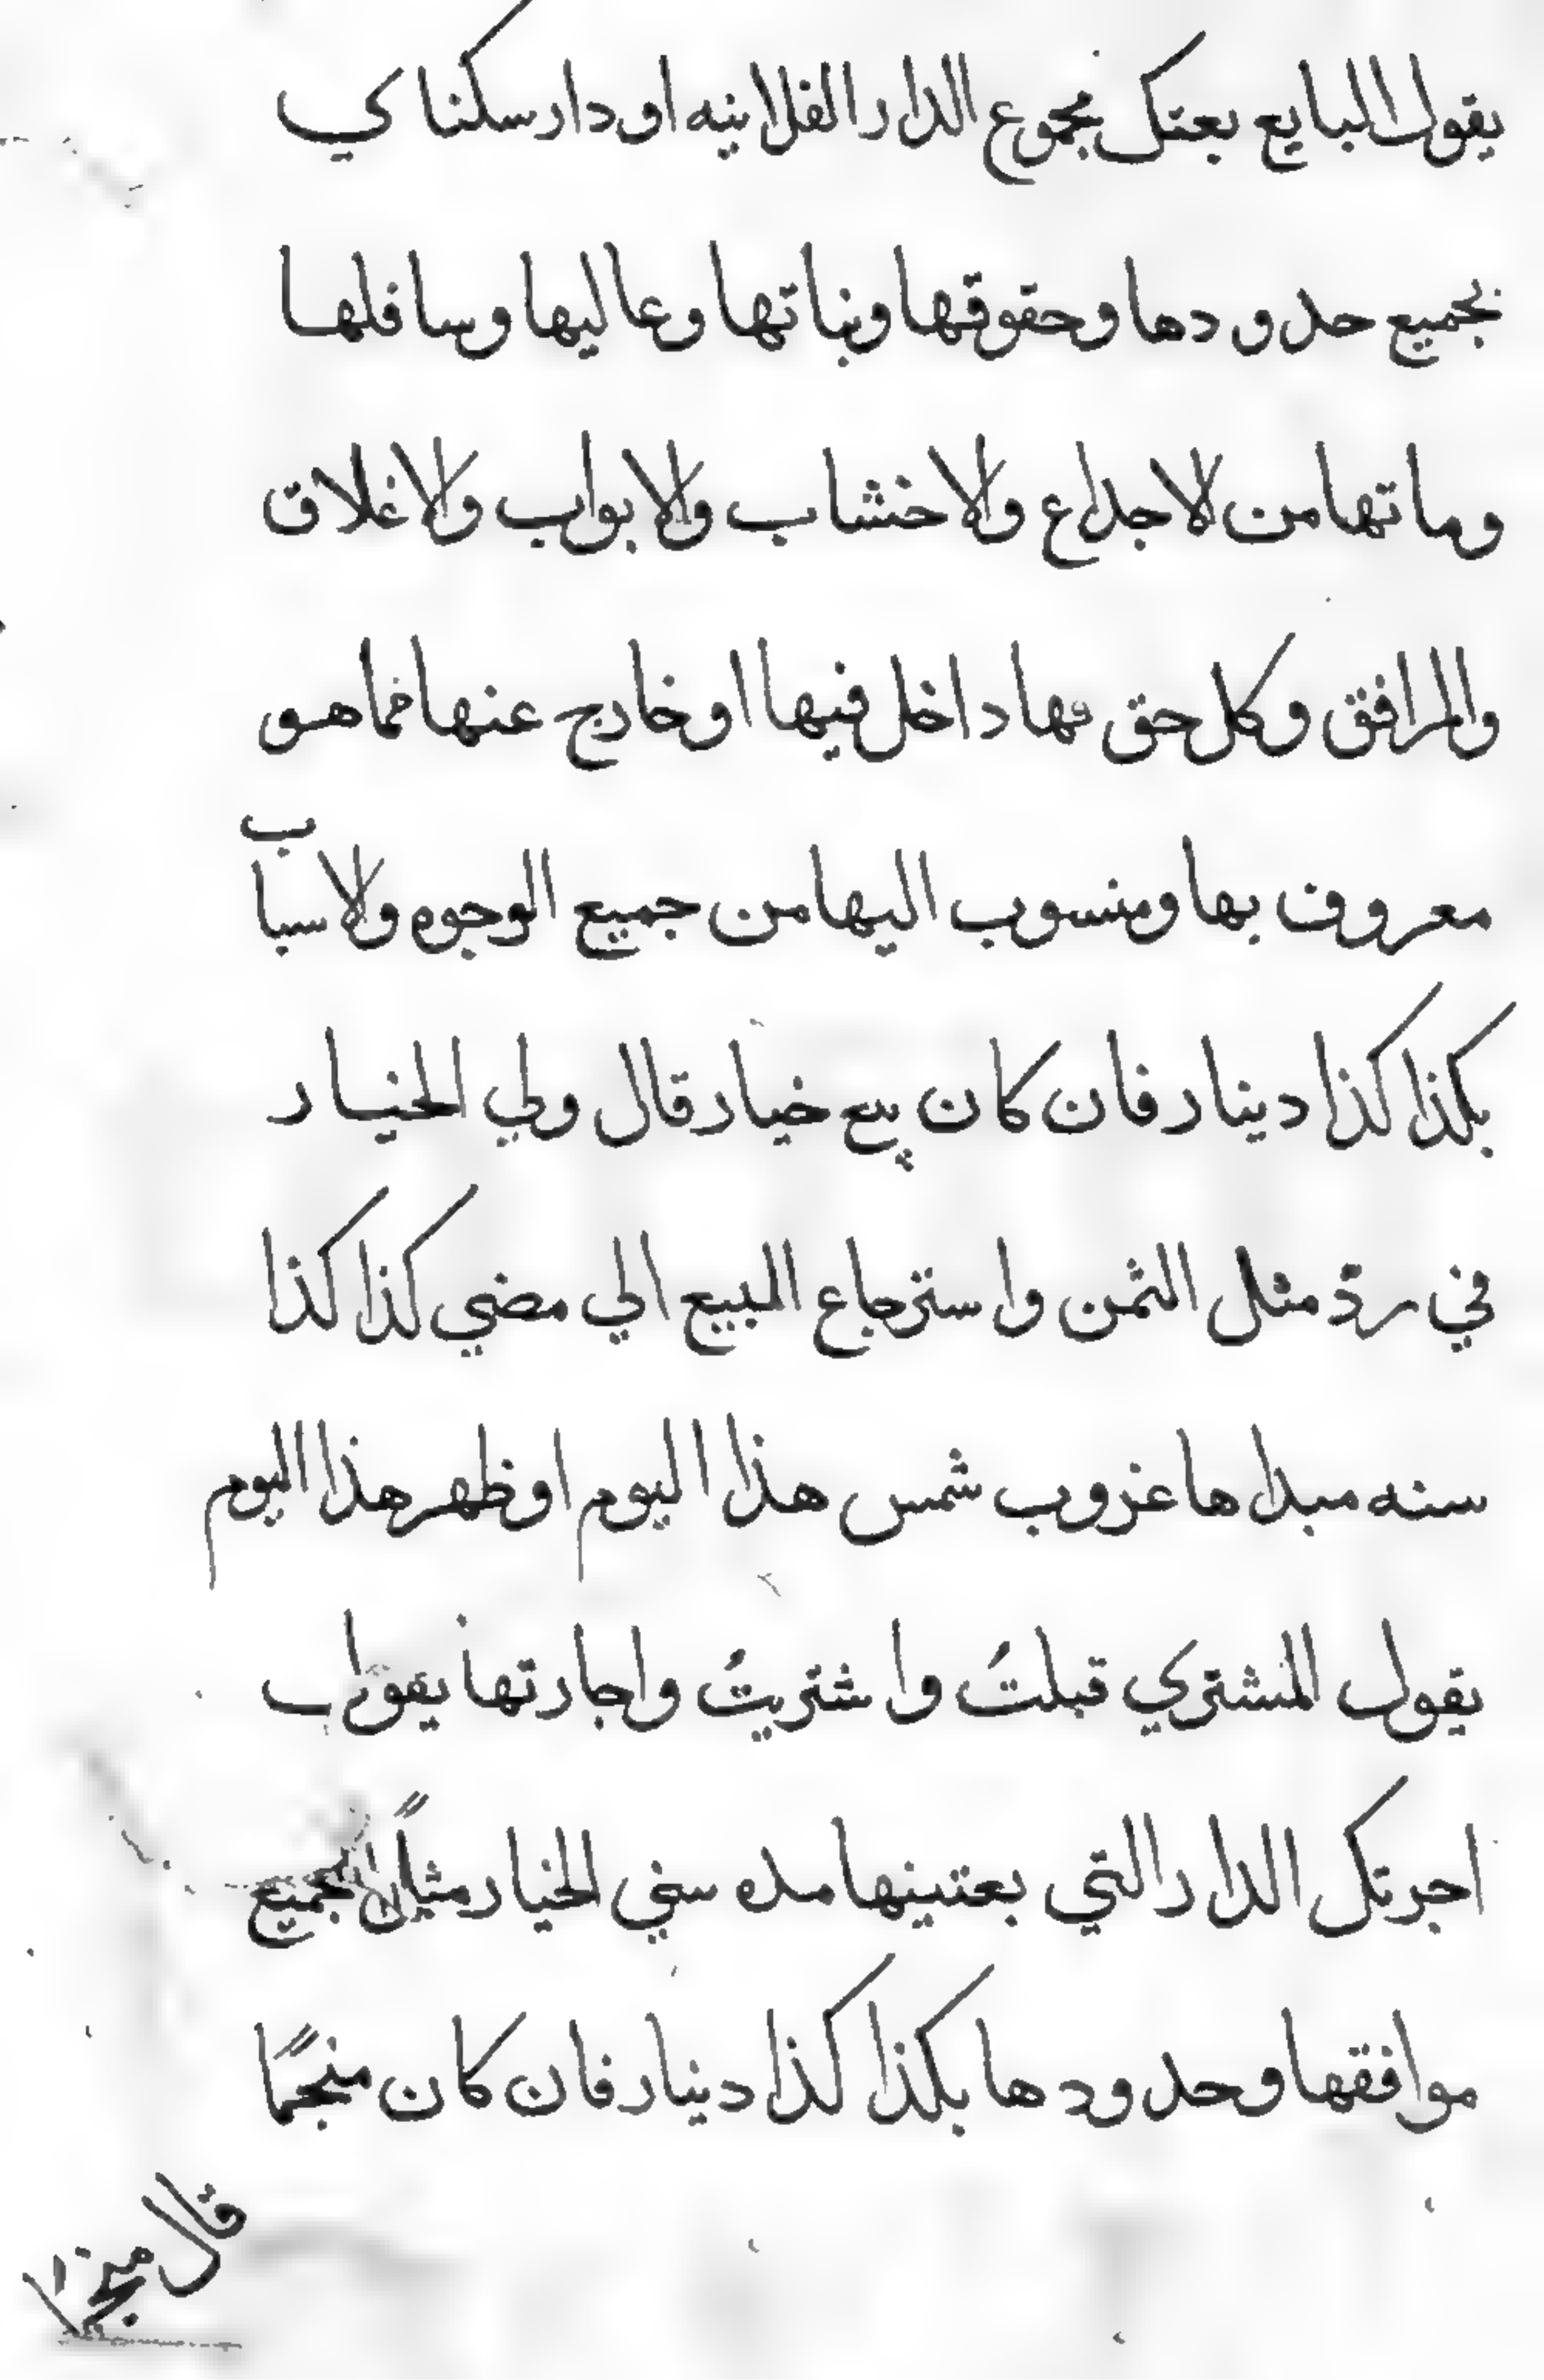 يقول البايع بعتك مجموع الدار الفلانيه او دار سكناي
بجميع حدودها وحقوقها وبناتها وعاليها وسافلها
وما تها من الاجداع والاخشاب والابواب والاغلاق
والمرافق وكل حق لها داخل فيها او خارج عنها مما هو
معروف بها ومنسوب اليها من جميع الوجوه والاسباب
بكذا كذا دينار فان كان بيع خيار قال ولي الخيار
في ردّ مثل الثمن واسترجاع المبيع الي مضي كذا كذا
سنه مبداها غروب شمس هذا اليوم او ظهر هذا اليوم
يقول المشتري قبلتُ واشتريتُ واجارتها يقول
اجرتك الدار التي بعتينها مده سني الخيار مثلاً بجميع
موافقها وحدودها بكذا كذا دينار فان كان منجمًا
قال منجمًا